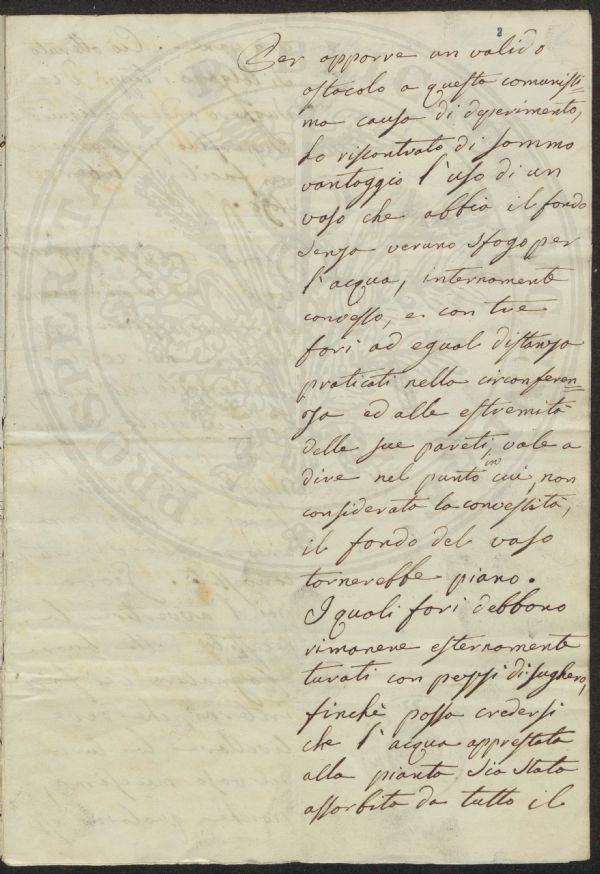 2
Per apporre un valido
ostacolo a questa comunissi=
ma causa di deperimento,
ho riscontrato di sommo
vantaggio l'uso di un
vaso che abbia il fondo
senza veruno sfogo per
l'acqua, internamente
convesso, e con tre
fori ad egual distanza
praticati nella circonferen=
za ed alle estremità
delle sue pareti, vale a
dire nel punto in cui, non
considerata la convessità,
il fondo del vaso
tornerebbe piano.
I quali fori debbono
rimanere esternamente
turati con pezzi di sughero,
finchè possa credersi
che l'acqua apprestata
alla pianta sia stata
assorbita da tutto il
PROSPERITA